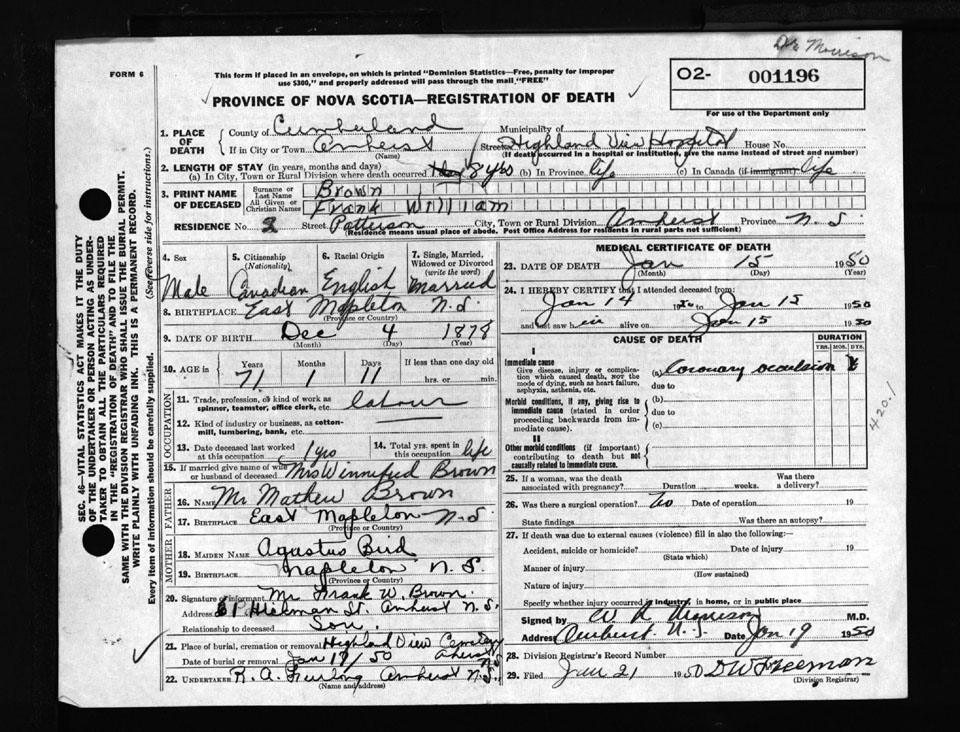 Dr Morrison
FORM 6
This form if placed in an envelope, on which is printed "Dominion Statistics—Free, penalty for improper
use $300," and properly addressed will pass through the mail "FREE"
O2- 001196
PROVINCE OF NOVA SCOTIA—REGISTRATION OF DEATH
For use of the Department only
1. PLACE OF DEATH
County of Cumberland Municipality of
If in City or Town Amherst Street Highland View Hospital House No.
(Name) (If death occurred in a hospital or institution, give the name instead of street and number)
2. LENGTH OF STAY (in years, months and days)
(a) In City, Town or Rural Division where death occurred 8 yrs (b) In Province life (c) In Canada (if immigrant) life
3. PRINT NAME OF DECEASED
Surname or Last Name Brown
All Given or Christian Names Frank William
RESIDENCE No. 2 Street Patterson City, Town or Rural Division Amherst Province N.S.
(Residence means usual place of abode. Post Office Address for residents in rural parts not sufficient)
4. Sex Male
5. Citizenship (Nationality) Canadian
6. Racial Origin English
7. Single, Married, Widowed or Divorced (write the word) Married
8. BIRTHPLACE East Mapleton N.S.
(Province or Country)
9. DATE OF BIRTH Dec 4 1878
(Month) (Day) (Year)
10. AGE in Years Months Days If less than one day old
71 1 11 hrs. or min.
OCCUPATION
11. Trade, profession, or kind of work as
spinner, teamster, office clerk, etc. labour
12. Kind of industry or business, as cotton-
mill, lumbering, bank, etc.
13. Date deceased last worked at this occupation 1 yrs
14. Total yrs. spent in this occupation life
15. If married give name of wife or husband of deceased Mrs Winnifred Brown
FATHER
16. NAME Mr Mathew Brown
17. BIRTHPLACE East Mapleton N.S
(Province or Country)
MOTHER
18. MAIDEN NAME Agustus Bird
19. BIRTHPLACE Mapleton N.S.
(Province or Country)
20. Signature of informant Mr Frank W. Brown.
Address Hickman St. Amherst N.S.
Relationship to deceased Son.
21. Place of burial, cremation or removal Highland View Cemetery
Amherst N.S
Date of burial or removal Jan 19/50
22. UNDERTAKER R. A. Furlong Amherst N.S.
(Name and address)
MEDICAL CERTIFICATE OF DEATH
23. DATE OF DEATH Jan 15 1950
(Month) (Day) (Year)
24. I HEREBY CERTIFY that I attended deceased from:
Jan 14 1950 to Jan 15 1950
and last saw him alive on Jan 15 1950
CAUSE OF DEATH
DURATION
YRS. MOS. DYS.
I
Immediate cause
Give disease, injury or complication which caused death, not the mode of dying, such as heart failure, asphyxia, asthenia, etc.
(a) Coronary occulsion
due to
Morbid conditions, if any, giving rise to immediate cause (stated in order proceeding backwards from immediate cause).
(b)
due to
(c)
420.1
II
Other morbid conditions (if important) contributing to death but not causally related to immediate cause.
25. If a woman, was the death associated with pregnancy? Duration weeks. Was there a delivery?
26. Was there a surgical operation? no Date of operation 19
State findings Was there an autopsy?
27. If death was due to external causes (violence) fill in also the following:
Accident, suicide or homicide? Date of injury 19
(State which)
Manner of injury
(How sustained)
Nature of injury
Specify whether injury occurred in industry, in home, or in public place
Signed by W R Morrison M.D.
Address Amherst N.S. Date Jan 19 1950
28. Division Registrar's Record Number
29. Filed Jan 21 1950 D W Freeman
(Division Registrar)
SEC. 46—VITAL STATISTICS ACT MAKES IT THE DUTY
OF THE UNDERTAKER OR PERSON ACTING AS UNDER-
TAKER TO OBTAIN ALL THE PARTICULARS REQUIRED
IN THE "REGISTRATION OF DEATH" AND TO FILE THE
SAME WITH THE DIVISION REGISTRAR WHO SHALL ISSUE THE BURIAL PERMIT.
WRITE PLAINLY WITH UNFADING INK. THIS IS A PERMANENT RECORD.
Every item of information should be carefully supplied. (See reverse side for instructions.)